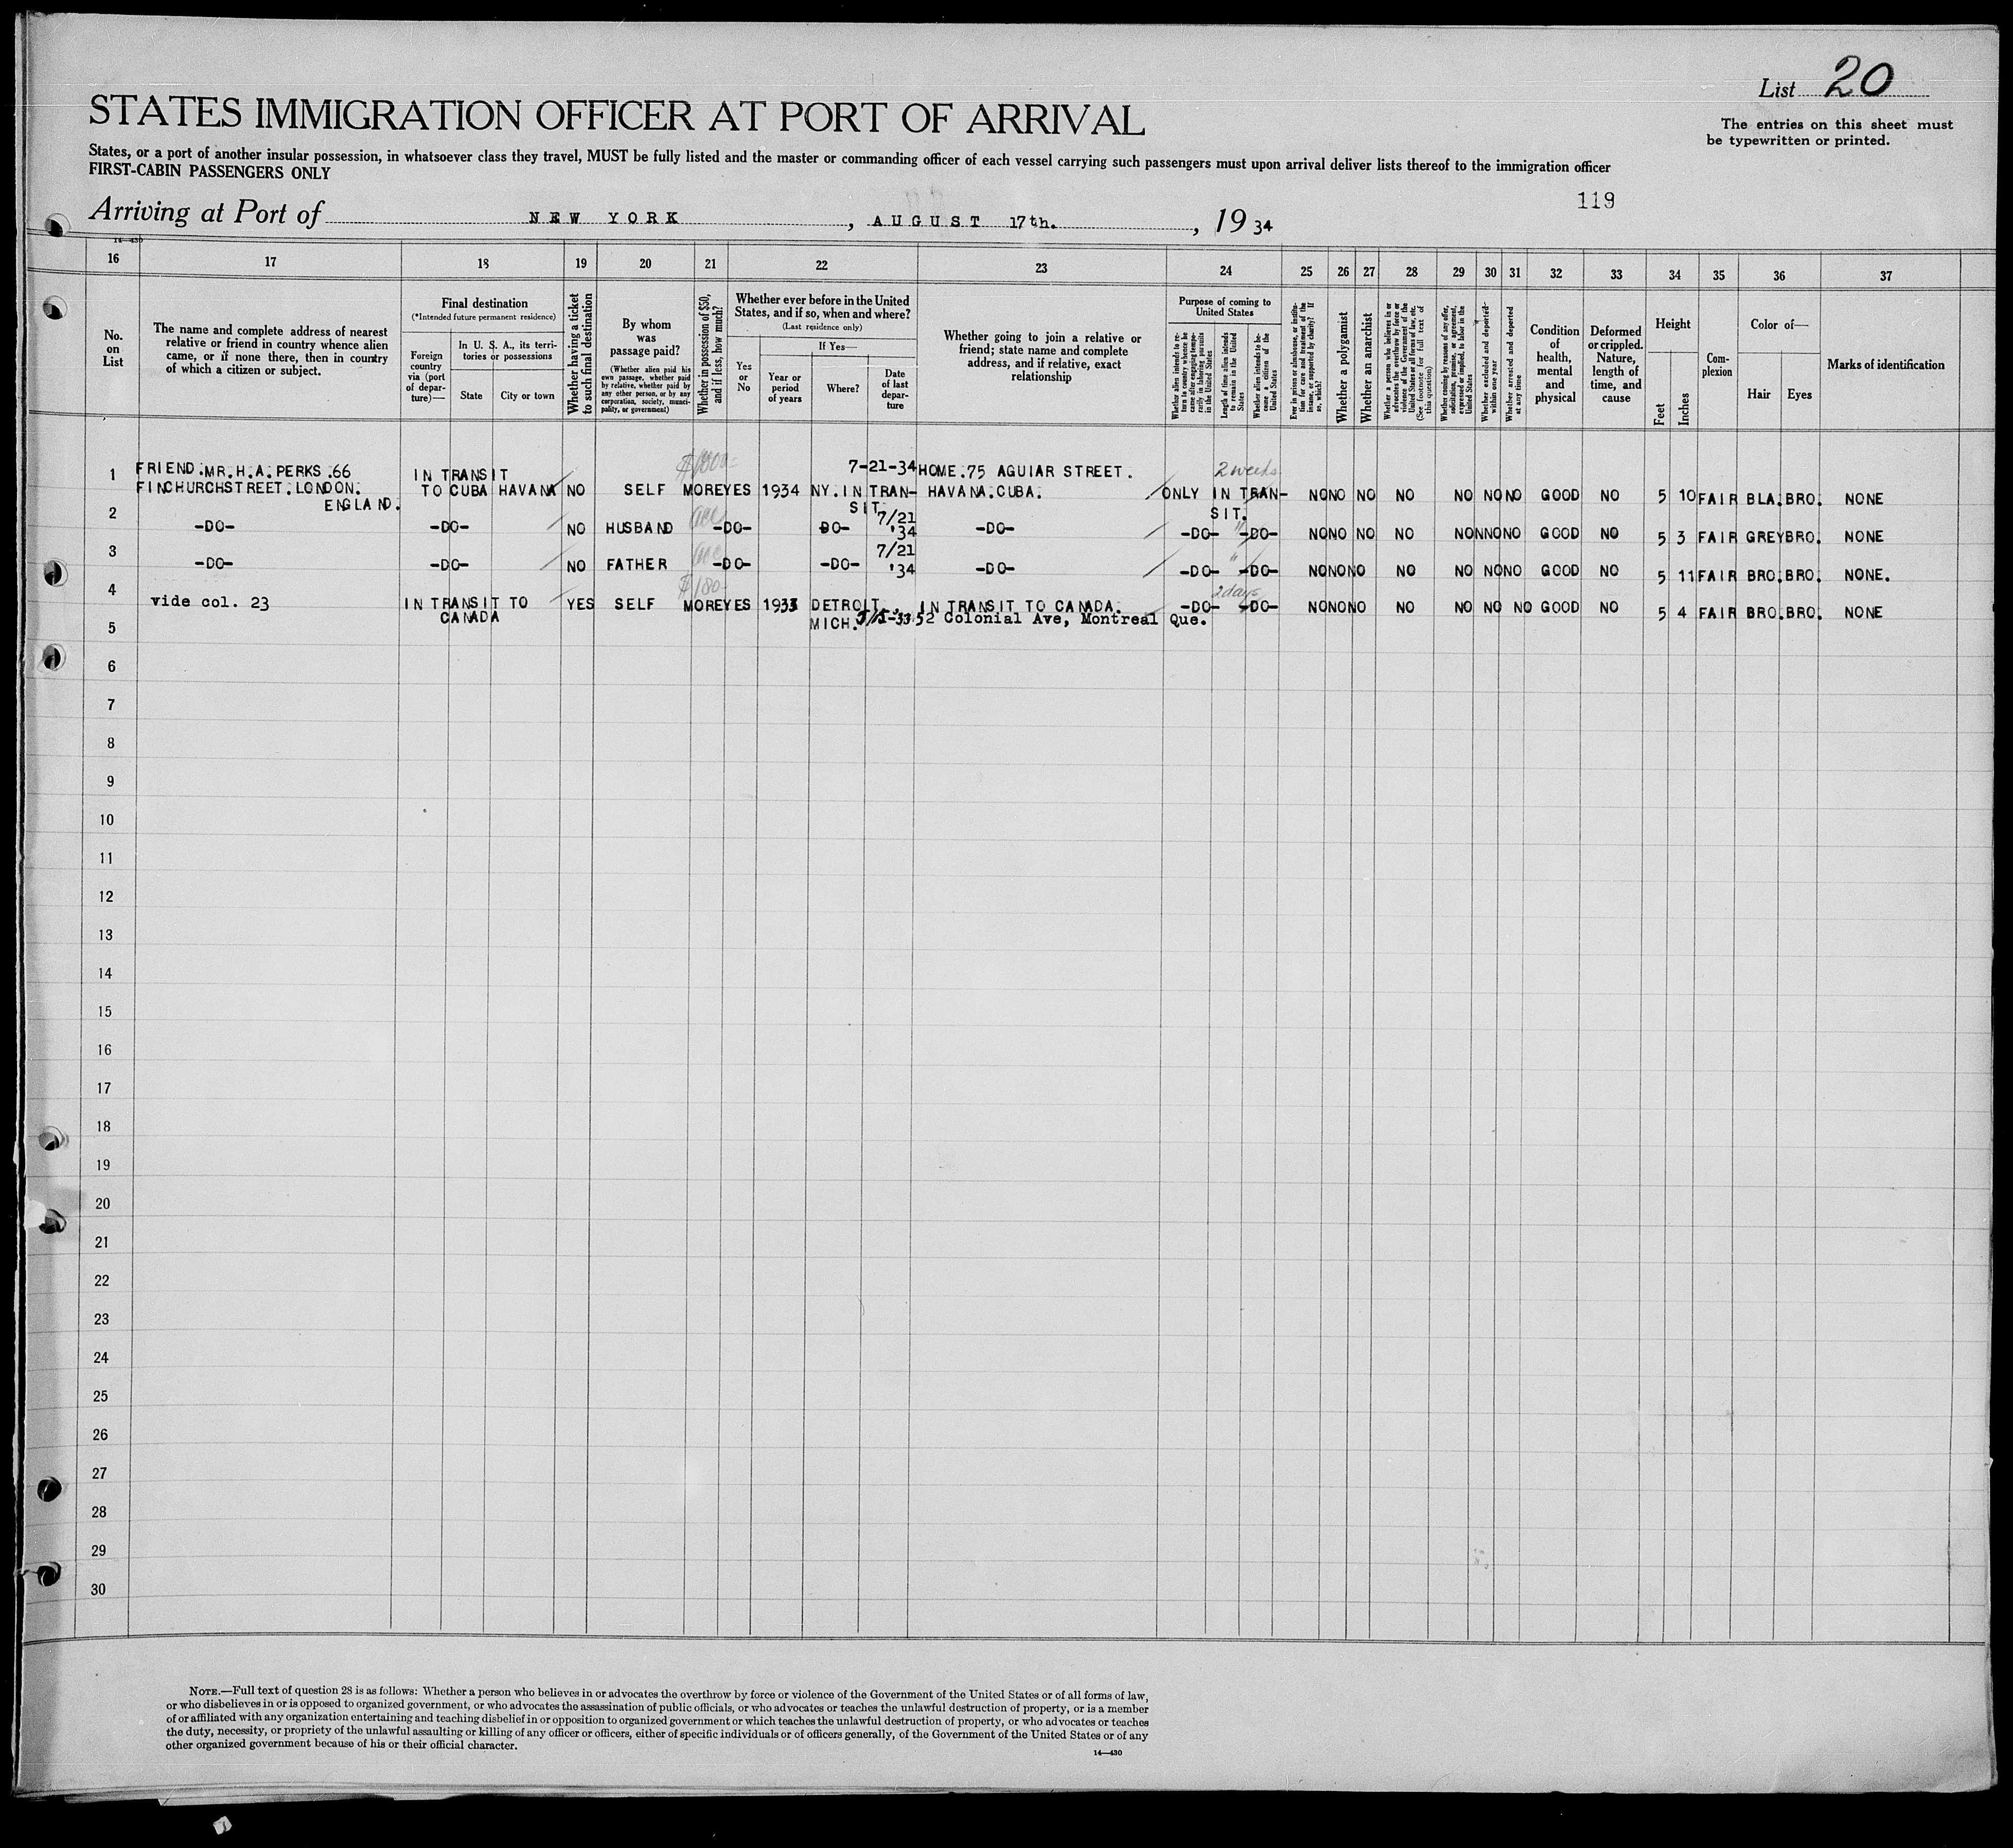 List 20
The entries on this sheet must
be typewritten or printed.
STATES IMMIGRATION OFFICER AT PORT OF ARRIVAL
States, or a port of another insular possession, in whatsoever class they travel, MUST be fully listed and the master or commanding officer of each vessel carrying such passengers must upon arrival deliver lists thereof to the immigration officer
FIRST-CABIN PASSENGERS ONLY
119
Arriving at Port of NEW YORK, AUGUST 17th., 1934
14—430
16 17 18 19 20 21 22 23 24 25 26 27 28 29 30 31 32 33 34 35 36 37
No.
on
List
The name and complete address of nearest
relative or friend in country whence alien
came, or if none there, then in country
of which a citizen or subject.
Final destination
(*Intended future permanent residence)
Foreign
country
via (port
of depar-
ture)—
In U. S. A., its terri-
tories or possessions
State
City or town
Whether having a ticket
to such final destination
By whom
was
passage paid?
(Whether alien paid his
own passage, whether paid
by relative, whether paid by
any other person, or by any
corporation, society, munici-
pality, or government)
Whether in possession of $50,
and if less, how much?
Whether ever before in the United
States, and if so, when and where?
(Last residence only)
Yes
or
No
If Yes—
Year or
period
of years
Where?
Date
of last
depar-
ture
Whether going to join a relative or
friend; state name and complete
address, and if relative, exact
relationship
Purpose of coming to
United States
Whether alien intends to re-
turn to country whence he
came after engaging tempo-
rarily in laboring pursuits
in the United States
Length of time alien intends
to remain in the United
States
Whether alien intends to be-
come a citizen of the
United States
Ever in prison or almshouse, or institu-
tion for care and treatment of the
insane, or supported by charity? If
so, which?
Whether a polygamist
Whether an anarchist
Whether a person who believes in or
advocates the overthrow by force or
violence of the Government of the
United States or all forms of law, etc.
(See footnote for full text of
this question)
Whether coming by reasons of any offer,
solicitation, promise, or agreement,
expressed or implied, to labor in the
United States
Whether excluded and deported
within one year
Whether arrested and deported
at any time
Condition
of
health,
mental
and
physical
Deformed
or crippled.
Nature,
length of
time, and
cause
Height
Feet
Inches
Com-
plexion
Color of—
Hair
Eyes
Marks of identification
1 FRIEND.MR.H.A.PERKS.66 IN TRANSIT $1000= 7-21-34 HOME.75 AGUIAR STREET. 2 weeks
FINCHURCHSTREET.LONDON. TO CUBA HAVANA NO SELF MORE YES 1934 NY.IN TRAN- HAVANA.CUBA. ONLY IN TRAN- NO NO NO NO NO NO NO GOOD NO 5 10 FAIR BLA. BRO. NONE
ENGLAND. SIT SIT.
2 -DO- -DO- NO HUSBAND -DO- DO- 7/21 '34 -DO- -DO- " -DO- NO NO NO NO NO NNO NO GOOD NO 5 3 FAIR GREY BRO. NONE
3 -DO- -DO- NO FATHER -DO- -DO- 7/21 '34 -DO- -DO- " -DO- NO NO NO NO NO NO NO GOOD NO 5 11 FAIR BRO. BRO. NONE.
4 vide col. 23 IN TRANSIT TO YES SELF $180 MORE YES 1933 DETROIT. IN TRANSIT TO CANADA. -DO- 2 days -DO- NO NO NO NO NO NO NO GOOD NO 5 4 FAIR BRO. BRO. NONE
CANADA MICH. 52 Colonial Ave, Montreal Que.
5
6
7
8
9
10
11
12
13
14
15
16
17
18
19
20
21
22
23
24
25
26
27
28
29
30
NOTE.—Full text of question 28 is as follows: Whether a person who believes in or advocates the overthrow by force or violence of the Government of the United States or of all forms of law,
or who disbelieves in or is opposed to organized government, or who advocates the assassination of public officials, or who advocates or teaches the unlawful destruction of property, or is a member
of or affiliated with any organization entertaining and teaching disbelief in or opposition to organized government or which teaches the unlawful destruction of property, or who advocates or teaches
the duty, necessity, or propriety of the unlawful assaulting or killing of any officer or officers, either of specific individuals or of officers generally, of the Government of the United States or of any
other organized government because of his or their official character.
14—430